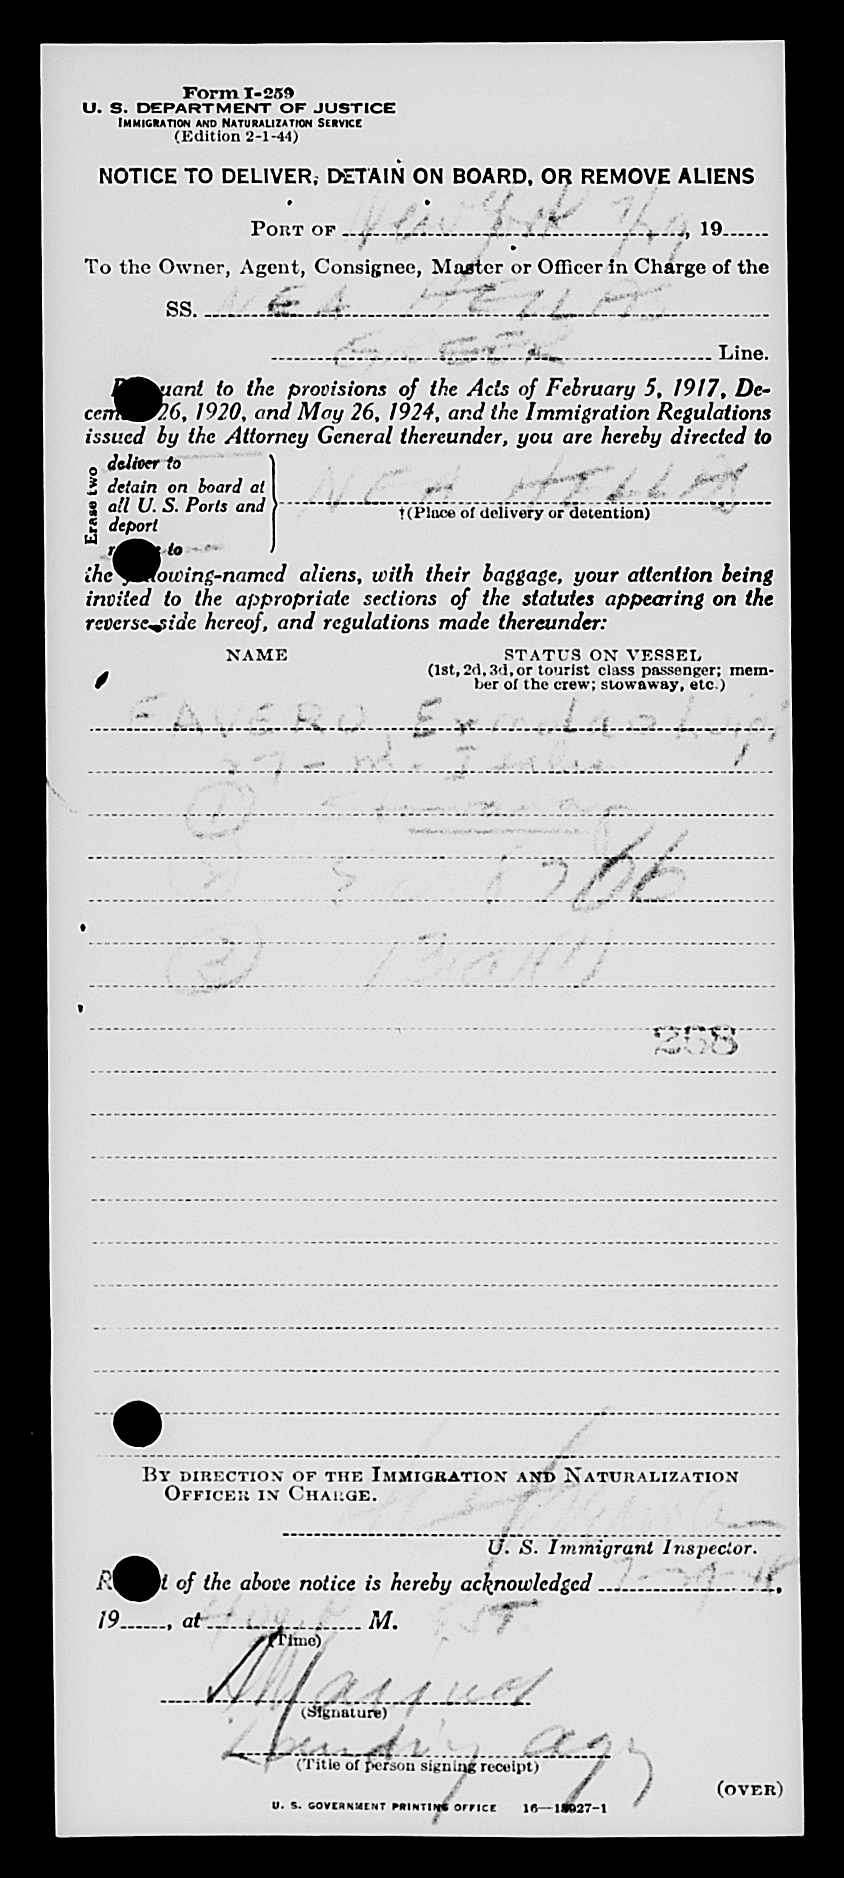 Form I-259
U. S. DEPARTMENT OF JUSTICE
IMMIGRATION AND NATURALIZATION SERVICE
(Edition 2-1-44)
NOTICE TO DELIVER, DETAIN ON BOARD, OR REMOVE ALIENS
PORT OF New York 7/29, 19
To the Owner, Agent, Consignee, Master or Officer in Charge of the
SS. NEA HELLAS
GREEK Line.
to the provisions of the Acts of February 5, 1917, De-
26, 1920, and May 26, 1924, and the Immigration Regulations
issued by the Attorney General thereunder, you are hereby directed to
Erase two
deliver to
detain on board at
all U. S. Ports and
deport
to
NEA HELLAS
†(Place of delivery or detention)
the following-named aliens, with their baggage, your attention being
invited to the appropriate sections of the statutes appearing on the
reverse side hereof, and regulations made thereunder:
NAME STATUS ON VESSEL
(1st, 2d, 3d, or tourist class passenger; mem-
ber of the crew; stowaway, etc.)
FAVERO
27 - m.
①
②
③
268
BY DIRECTION OF THE IMMIGRATION AND NATURALIZATION
OFFICER IN CHARGE.
U. S. Immigrant Inspector.
of the above notice is hereby acknowledged
19, at M. EST
(Time)
(Signature)
(Title of person signing receipt)
(OVER)
U. S. GOVERNMENT PRINTING OFFICE 16—18027-1